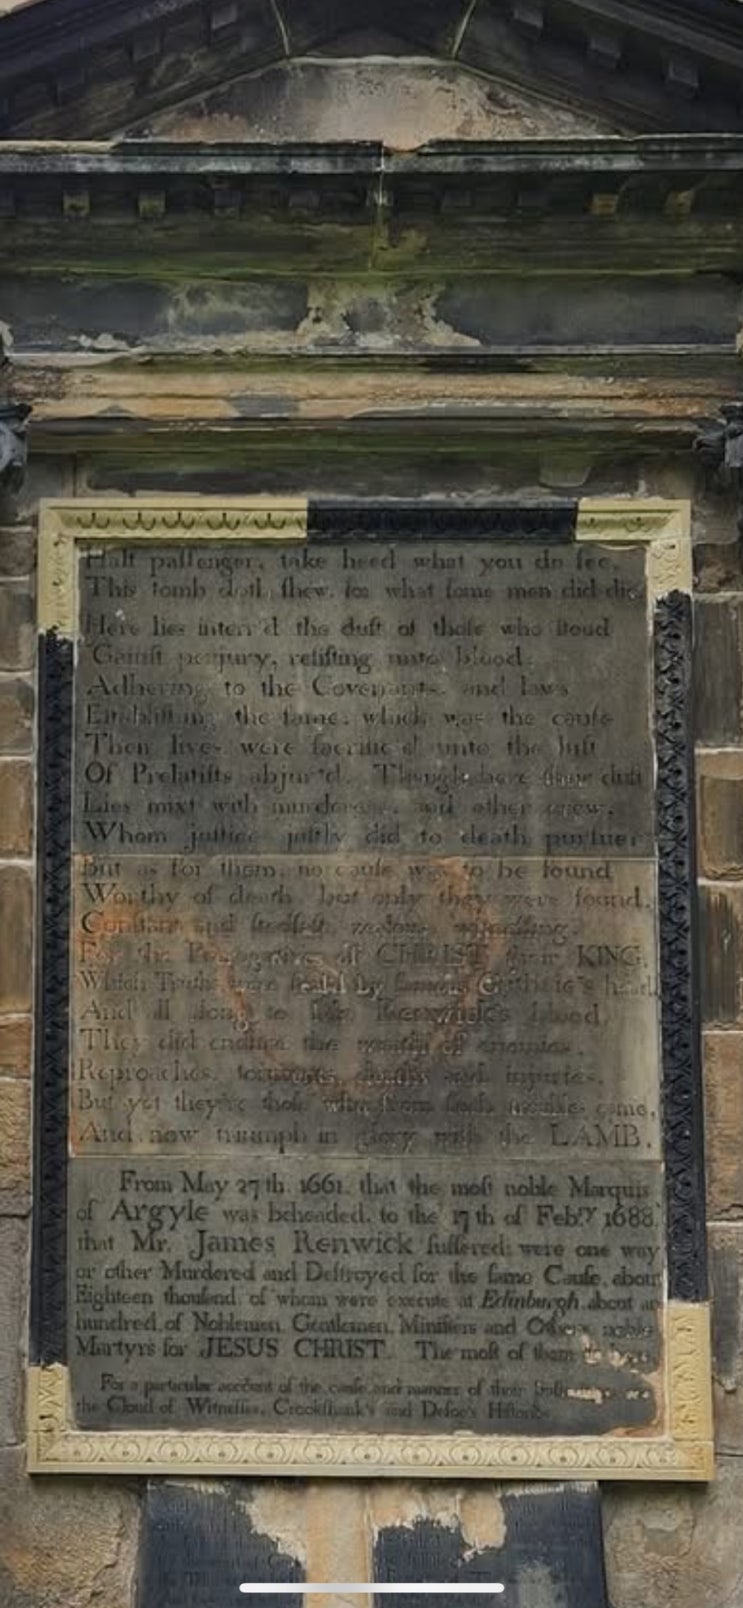 Halt paſſenger, take heed what you do ſee,
This tomb doth ſhew, for what ſome men did die.
Here lies interr'd the duſt of thoſe who ſtood
'Gainſt perjury, reſiſting unto blood;
Adhering to the Covenants, and laws
Eſtabliſhing the ſame: which was the cauſe
Their lives were ſacrific'd unto the luſt
Of Prelatiſts abjur'd. Though here their duſt
Lies mixt with murderers, and other crew,
Whom juſtice juſtly did to death purſue:
But as for them, no cauſe was to be found
Worthy of death, but only they were found,
Conſtant and ſtedfaſt, zealous, witneſſing,
For the Prerogatives of CHRIST their KING.
Which Truths were ſeal'd by famous Guthrie's head,
And all along to Mr. Renwick's blood.
They did endure the wrath of enemies,
Reproaches, torments, deaths and injuries.
But yet they're thoſe who from ſuch troubles came,
And now triumph in glory with the LAMB.
From May 27th. 1661. that the moſt noble Marquis
of Argyle was beheaded, to the 17th of Feb.ry 1688.
that Mr. James Renwick ſuffered; were one way
or other Murdered and Deſtroyed for the ſame Cauſe, about
Eighteen thouſand, of whom were execute at Edinburgh, about an
hundred, of Noblemen, Gentlemen, Miniſters and Others, noble
Martyrs for JESUS CHRIST. The moſt of them lie here.
For a particular account of the cauſe and manner of their
the Cloud of Witneſſes, Crookſhank's and Defoe's Hiſtories.